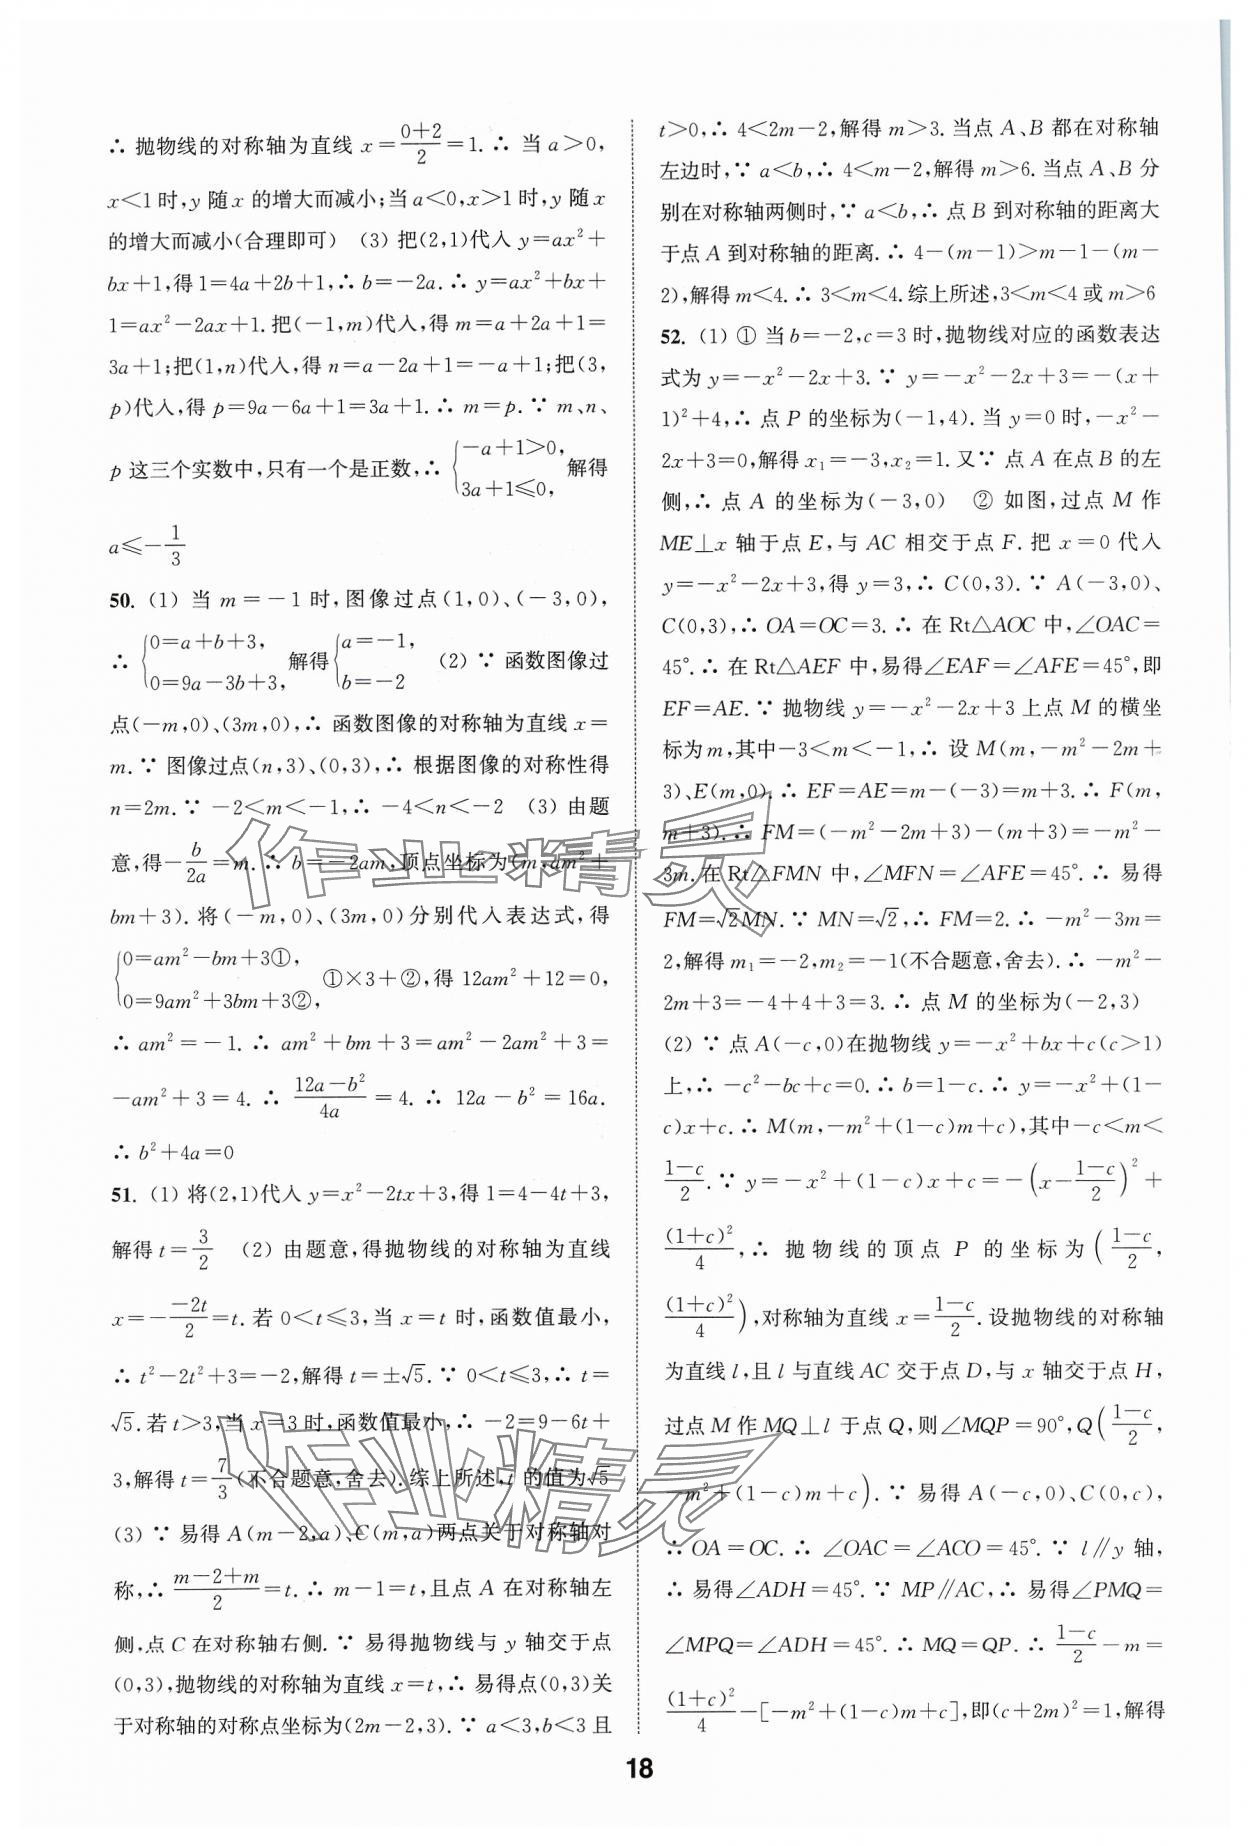 ∴ 抛物线的对称轴为直线 x=\frac{0+2}{2}=1.∴ 当 a>0,
x<1 时,y 随 x 的增大而减小;当 a<0,x>1 时,y 随 x
的增大而减小(合理即可) (3) 把(2,1)代入 y=ax²+
bx+1,得 1=4a+2b+1,∴ b=-2a.∴ y=ax²+bx+
1=ax²-2ax+1.把(-1,m)代入,得 m=a+2a+1=
3a+1;把(1,n)代入,得 n=a-2a+1=-a+1;把(3,
p)代入,得 p=9a-6a+1=3a+1.∴ m=p.∵ m、n、
p 这三个实数中,只有一个是正数,∴ {-a+1>0, 3a+1≤0, 解得
a≤-\frac{1}{3}
50. (1) 当 m=-1 时,图像过点(1,0)、(-3,0),
∴ {0=a+b+3, 0=9a-3b+3, 解得 {a=-1, b=-2 (2) ∵ 函数图像过
点(-m,0)、(3m,0),∴ 函数图像的对称轴为直线 x=
m.∵ 图像过点(n,3)、(0,3),∴ 根据图像的对称性得
n=2m.∵ -2<m<-1,∴ -4<n<-2 (3) 由题
意,得-\frac{b}{2a}=m.∴ b=-2am.顶点坐标为(m,am²+
bm+3).将(-m,0)、(3m,0)分别代入表达式,得
{0=am²-bm+3①, 0=9am²+3bm+3②, ①×3+②,得 12am²+12=0,
∴ am²=-1.∴ am²+bm+3=am²-2am²+3=
-am²+3=4.∴ \frac{12a-b²}{4a}=4.∴ 12a-b²=16a.
∴ b²+4a=0
51. (1) 将(2,1)代入 y=x²-2tx+3,得 1=4-4t+3,
解得 t=\frac{3}{2} (2) 由题意,得抛物线的对称轴为直线
x=-\frac{-2t}{2}=t.若 0<t≤3,当 x=t 时,函数值最小,
∴ t²-2t²+3=-2,解得 t=±√5.∵ 0<t≤3,∴ t=
√5.若 t>3,当 x=3 时,函数值最小,∴ -2=9-6t+
3,解得 t=\frac{7}{3}(不合题意,舍去).综上所述,t 的值为√5
(3) ∵ 易得 A(m-2,a)、C(m,a)两点关于对称轴对
称,∴ \frac{m-2+m}{2}=t.∴ m-1=t,且点 A 在对称轴左
侧,点 C 在对称轴右侧.∵ 易得抛物线与 y 轴交于点
(0,3),抛物线的对称轴为直线 x=t,∴ 易得点(0,3)关
于对称轴的对称点坐标为(2m-2,3).∵ a<3,b<3 且
t>0,∴ 4<2m-2,解得 m>3.当点 A、B 都在对称轴
左边时,∵ a<b,∴ 4<m-2,解得 m>6.当点 A、B 分
别在对称轴两侧时,∵ a<b,∴ 点 B 到对称轴的距离大
于点 A 到对称轴的距离.∴ 4-(m-1)>m-1-(m-
2),解得 m<4.∴ 3<m<4.综上所述,3<m<4 或 m>6
52. (1) ① 当 b=-2,c=3 时,抛物线对应的函数表达
式为 y=-x²-2x+3.∵ y=-x²-2x+3=-(x+
1)²+4,∴ 点 P 的坐标为(-1,4).当 y=0 时,-x²-
2x+3=0,解得 x₁=-3,x₂=1.又∵ 点 A 在点 B 的左
侧,∴ 点 A 的坐标为(-3,0) ② 如图,过点 M 作
ME⊥x 轴于点 E,与 AC 相交于点 F.把 x=0 代入
y=-x²-2x+3,得 y=3,∴ C(0,3).∵ A(-3,0)、
C(0,3),∴ OA=OC=3.∴ 在 Rt△AOC 中,∠OAC=
45°.∴ 在 Rt△AEF 中,易得∠EAF=∠AFE=45°,即
EF=AE.∵ 抛物线 y=-x²-2x+3 上点 M 的横坐
标为 m,其中-3<m<-1,∴ 设 M(m,-m²-2m+
3)、E(m,0).∴ EF=AE=m-(-3)=m+3.∴ F(m,
m+3).∴ FM=(-m²-2m+3)-(m+3)=-m²-
3m.在 Rt△FMN 中,∠MFN=∠AFE=45°.∴ 易得
FM=√2MN.∵ MN=√2,∴ FM=2.∴ -m²-3m=
2,解得 m₁=-2,m₂=-1(不合题意,舍去).∴ -m²-
2m+3=-4+4+3=3.∴ 点 M 的坐标为(-2,3)
(2) ∵ 点 A(-c,0)在抛物线 y=-x²+bx+c(c>1)
上,∴ -c²-bc+c=0.∴ b=1-c.∴ y=-x²+(1-
c)x+c.∴ M(m,-m²+(1-c)m+c),其中-c<m<
\frac{1-c}{2}.∵ y=-x²+(1-c)x+c=-(x-\frac{1-c}{2})²+
\frac{(1+c)²}{4},∴ 抛物线的顶点 P 的坐标为(\frac{1-c}{2},
\frac{(1+c)²}{4}),对称轴为直线 x=\frac{1-c}{2}.设抛物线的对称轴
为直线 l,且 l 与直线 AC 交于点 D,与 x 轴交于点 H,
过点 M 作 MQ⊥l 于点 Q,则∠MQP=90°,Q(\frac{1-c}{2},
-m²+(1-c)m+c).∵ 易得 A(-c,0)、C(0,c),
∴ OA=OC.∴ ∠OAC=∠ACO=45°.∵ l∥y 轴,
∴ 易得∠ADH=45°.∵ MP∥AC,∴ 易得∠PMQ=
∠MPQ=∠ADH=45°.∴ MQ=QP.∴ \frac{1-c}{2}-m=
\frac{(1+c)²}{4}-[-m²+(1-c)m+c],即(c+2m)²=1,解得
18
作业精灵
作业精灵